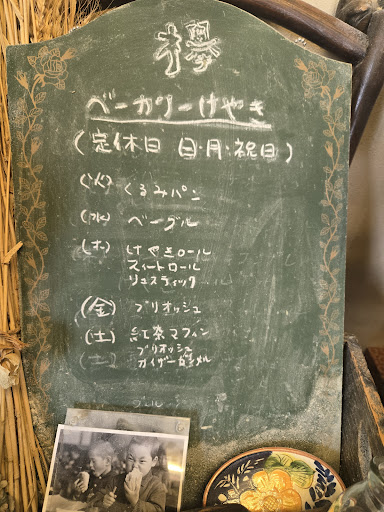 欅
ベーカリーけやき
(定休日 日・月・祝日)
(火) くるみパン
(水) ベーグル
(木) けやきロール
スィートロール
リュスティック
(金) ブリオッシュ
(土) 紅茶マフィン
(土) ブリオッシュ
カイザーゼンメル